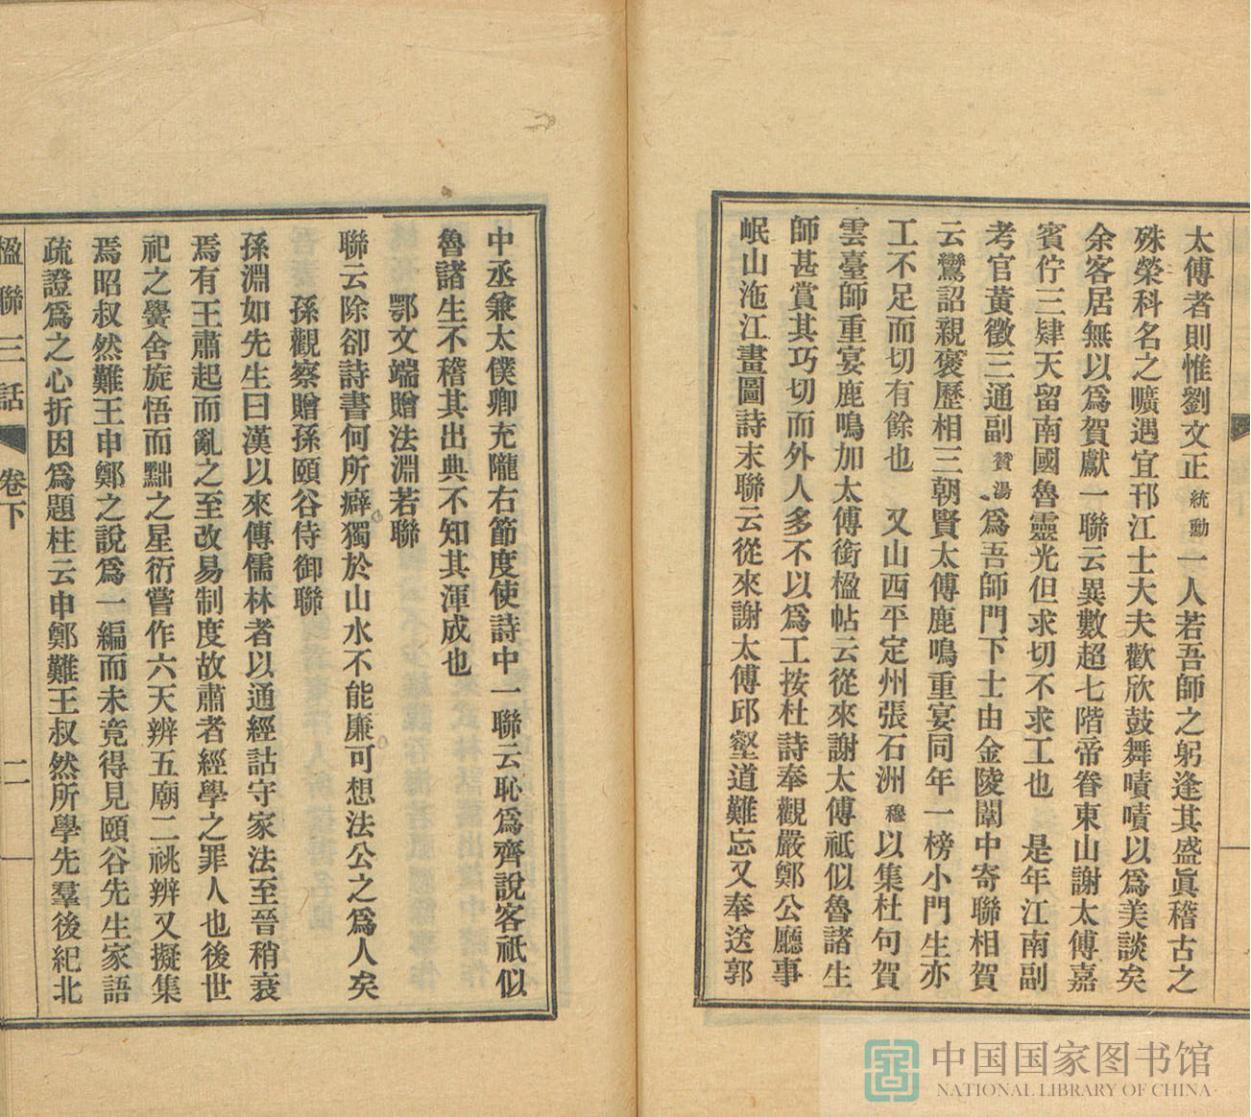 太傅者則惟劉文正統勳一人若吾師之躬逢其盛眞稽古之
殊榮科名之曠遇宜邗江士大夫歡欣鼓舞嘖嘖以爲美談矣
余客居無以爲賀獻一聯云異數超七階帝眷東山謝太傅嘉
賓佇三肄天留南國魯靈光但求切不求工也　是年江南副
考官黃徵三通副贊湯爲吾師門下士由金陵闈中寄聯相賀
云鸞詔親褒歷相三朝賢太傅鹿鳴重宴同年一榜小門生亦
工不足而切有餘也　又山西平定州張石洲穆以集杜句賀
雲臺師重宴鹿鳴加太傅銜楹帖云從來謝太傅祇似魯諸生
師甚賞其巧切而外人多不以爲工按杜詩奉觀嚴鄭公廳事
岷山沲江畫圖詩末聯云從來謝太傅邱壑道難忘又奉送郭
中丞兼太僕卿充隴右節度使詩中一聯云恥爲齊說客祇似
魯諸生不稽其出典不知其渾成也
鄂文端贈法淵若聯
聯云除卻詩書何所癖獨於山水不能廉可想法公之爲人矣
孫觀察贈孫頤谷侍御聯
孫淵如先生曰漢以來傳儒林者以通經詁守家法至晉稍衰
焉有王肅起而亂之至改易制度故肅者經學之罪人也後世
祀之黌舍旋悟而黜之星衍嘗作六天辨五廟二祧辨又擬集
焉昭叔然難王申鄭之說爲一編而未竟得見頤谷先生家語
疏證爲之心折因爲題柱云申鄭難王叔然所學先羣後紀北
楹聯三話
卷下
二
中国国家图书馆
NATIONAL LIBRARY OF CHINA